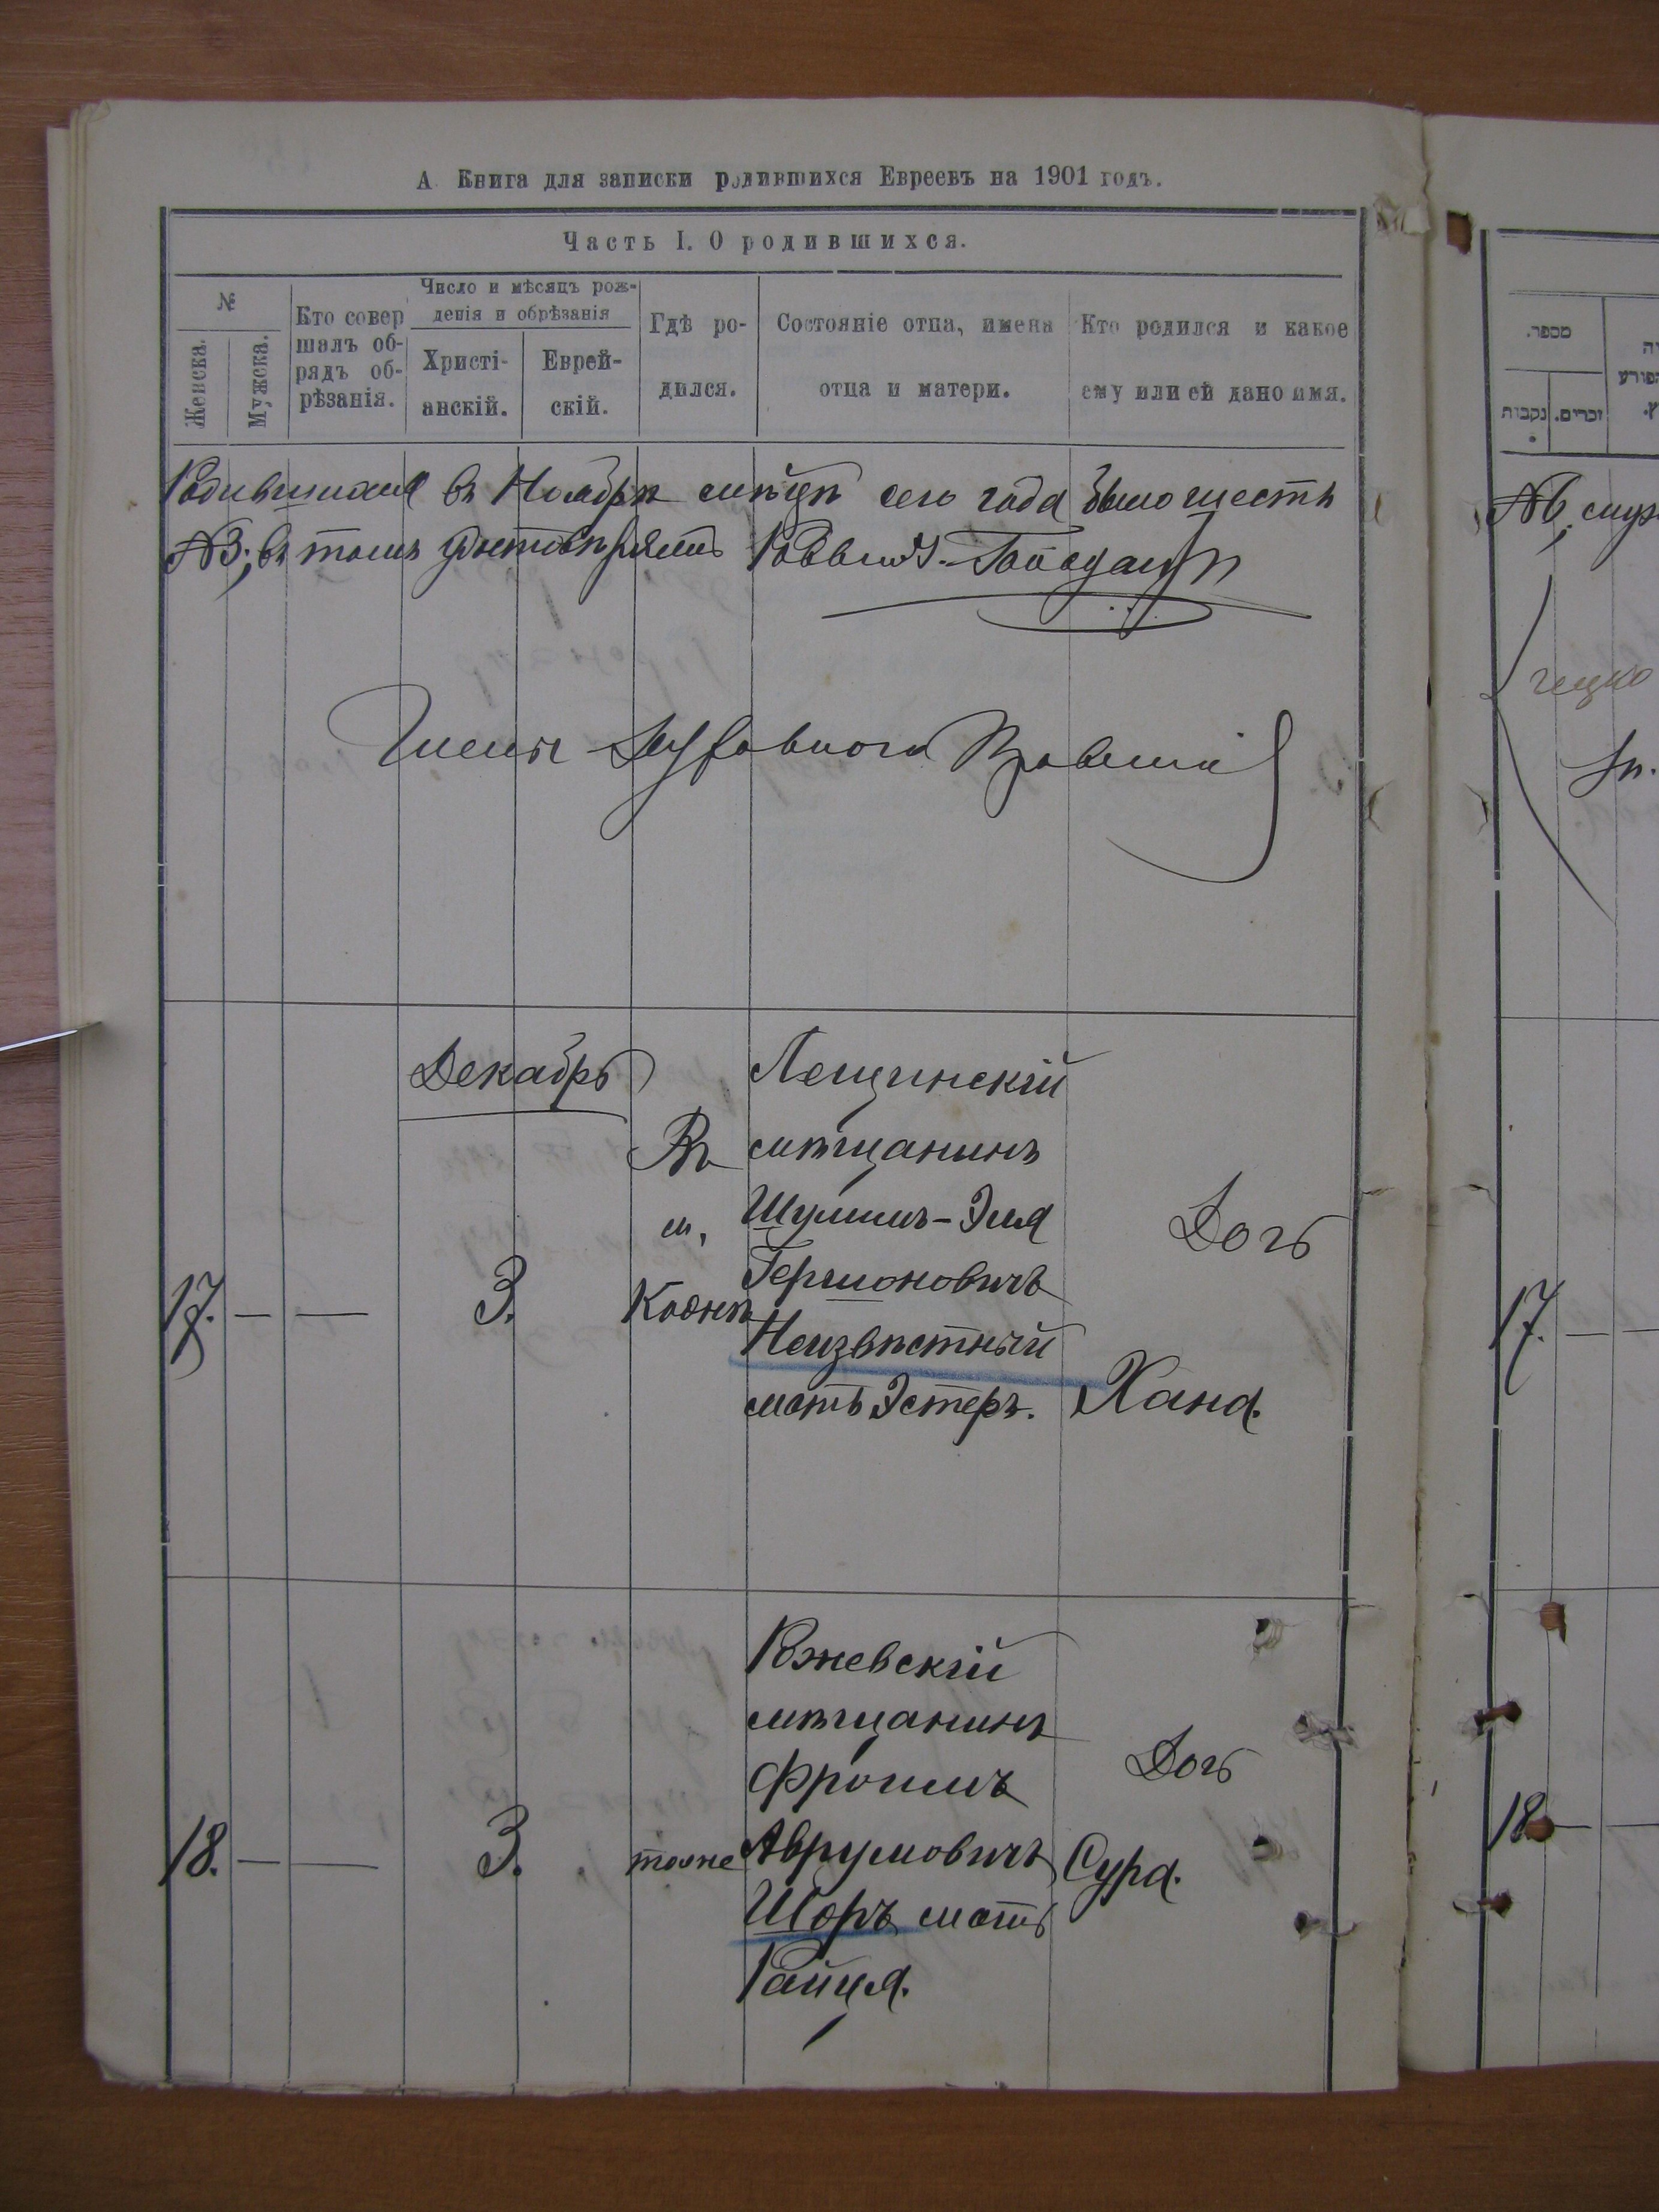 А Книга для записки родившихся Евреевъ на 1901 годъ.
Часть I. О родившихся.
№
Женска.
Мужска.
Кто совер
шалъ об-
рядъ об-
рѣзанія.
Число и мѣсяцъ рож-
денія и обрѣзанія
Христі-
анскій.
Еврей-
скій.
Гдѣ ро-
дился.
Состояніе отца, имена
отца и матери.
Кто родился и какое
ему или ей дано имя.
Родившихся въ Ноябрѣ мѣсяцѣ сего года было шесть
№; въ томъ Раввинъ
Члены Духовного Правленія
Декабрь
17. — — 3.
Въ
м.
Коднѣ
Лещинскій
мѣщанинъ
Шулимъ-Эля
Гершоновичъ
Неизвѣстный
мать Эстеръ.
Дочь
Хана.
18. — — 3. тоже
Ржевскій
мѣщанинъ
Фроимъ
Аврумовичъ
Шоръ мать
Райця.
Дочь
Сура.
מספר.
נקבות
זכרים.
17. — —
18. — —